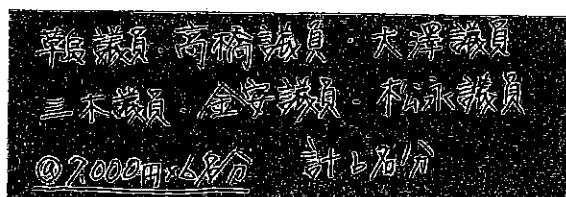 鶴議員・高橋議員・大澤議員
三木議員・金安議員・松永議員
@7,000円×6名分 計6名分